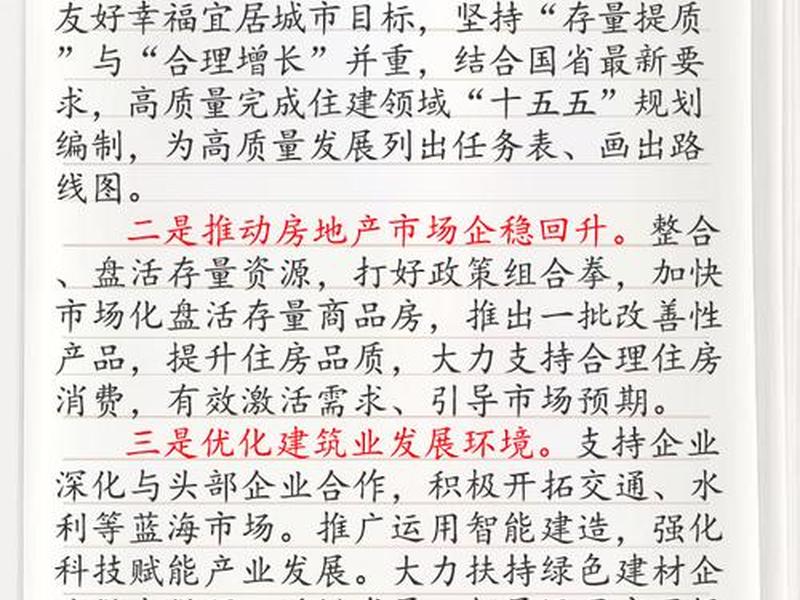 友好幸福宜居城市目标，坚持“存量提质
”与“合理增长”并重，结合国省最新要
求，高质量完成住建领域“十五五”规划
编制，为高质量发展列出任务表、画出路
线图。
二是推动房地产市场企稳回升。整合
、盘活存量资源，打好政策组合拳，加快
市场化盘活存量商品房，推出一批改善性
产品，提升住房品质，大力支持合理住房
消费，有效激活需求、引导市场预期。
三是优化建筑业发展环境。支持企业
深化与头部企业合作，积极开拓交通、水
利等蓝海市场。推广运用智能建造，强化
科技赋能产业发展。大力扶持绿色建材企